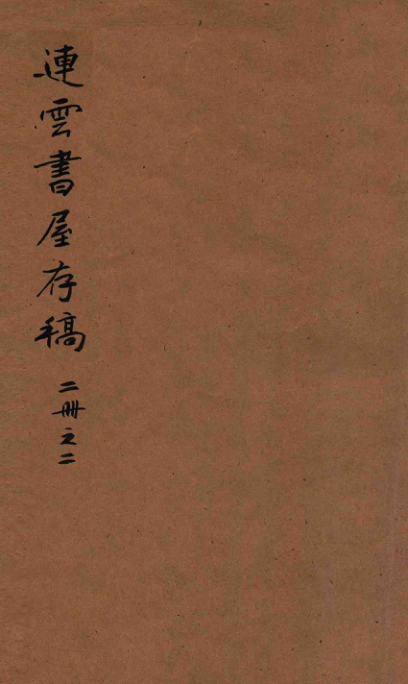 連雲書屋存稿 二冊之二